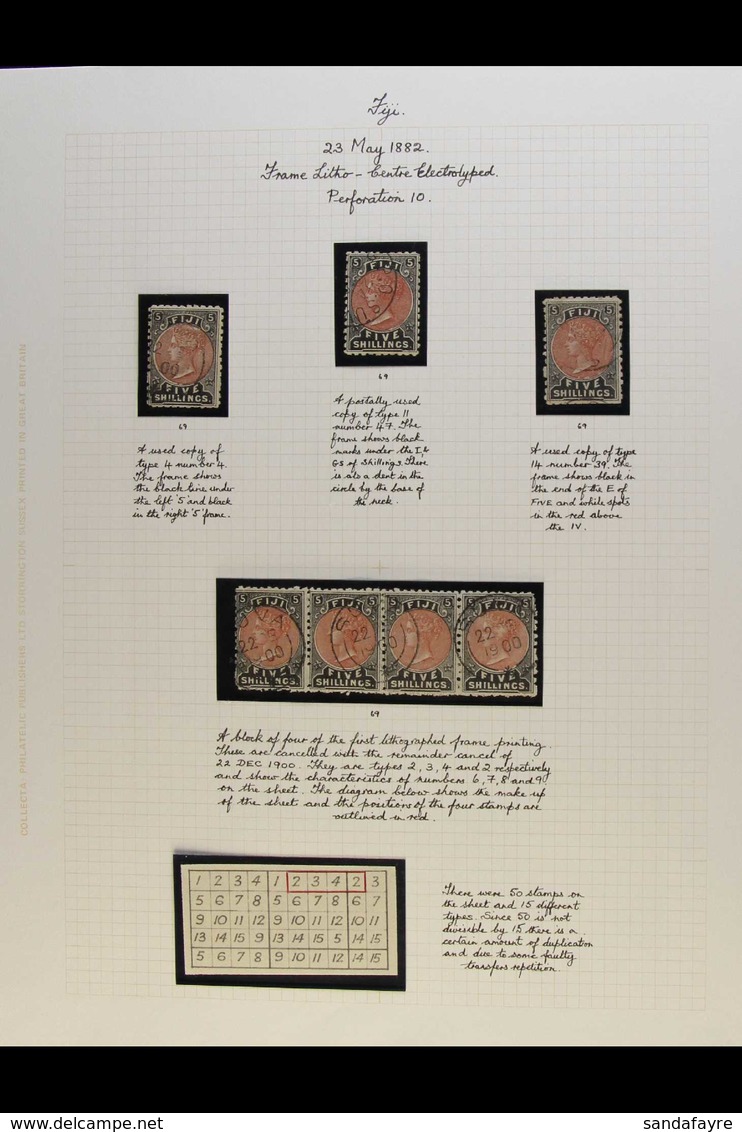 Fiji.
23 May 1882.
Frame Litho - Centre Electrotyped.
Perforation 10.
5 5
FIJI
FIVE
SHILLINGS.
69
5 5
FIJI
FIVE
SHILLINGS.
69
5 5
FIJI
FIVE
SHILLINGS.
69
A used copy of
type 4 number 4.
The frame shows
the black line under
the left '5' and black
in the right '5' frame.
A postally used
copy of type 11
number 47. The
frame shows black
marks under the I &
GS of Shillings. There
is also a dent in the
circle by the base of
the neck.
A used copy of type
14 number 39. The
frame shows black in
the end of the E of
FIVE and white spots
in the red above
the IV.
5 FIJI 5 5 FIJI 5 5 FIJI 5 5 FIJI 5
FIVE FIVE FIVE FIVE
SHILLINGS. SHILLINGS. SHILLINGS. SHILLINGS.
69
A block of four of the first lithographed frame printing.
These are cancelled with the remainder cancel of
22 DEC 1900. They are types 2, 3, 4 and 2 respectively
and show the characteristics of numbers 6, 7, 8 and 9
on the sheet. The diagram below shows the make up
of the sheet and the positions of the four stamps are
outlined in red.
1 2 3 4 1 2 3 4 2 3
5 6 7 8 5 6 7 8 6 7
9 10 11 12 9 10 11 12 10 11
13 14 15 9 13 14 15 5 14 15
5 6 7 8 9 10 11 12 14 15
There were 50 stamps on
the sheet and 15 different
types. Since 50 is not
divisible by 15 there is a
certain amount of duplication
and due to some faulty
transfers repetition.
COLLECTA: PHILATELIC PUBLISHERS LTD STORRINGTON SUSSEX PRINTED IN GREAT BRITAIN
delcampe.net
sandafayre